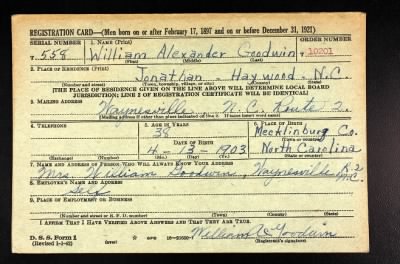 REGISTRATION CARD—(Men born on or after February 17, 1897 and on or before December 31, 1921)
SERIAL NUMBER 1. NAME (Print) ORDER NUMBER
558 William Alexander Goodwin 10201
(First) (Middle) (Last)
2. PLACE OF RESIDENCE (Print)
Jonathan - Haywood - N.C.
(Number and street) (Town, township, village, or city) (County) (State)
[THE PLACE OF RESIDENCE GIVEN ON THE LINE ABOVE WILL DETERMINE LOCAL BOARD
JURISDICTION; LINE 2 OF REGISTRATION CERTIFICATE WILL BE IDENTICAL]
3. MAILING ADDRESS
Waynesville N.C. Route 2.
[Mailing address if other than place indicated on line 2. If same insert word same]
4. TELEPHONE 5. AGE IN YEARS 6. PLACE OF BIRTH
38 Mecklinburg Co.
DATE OF BIRTH (Town or county)
4 - 13 - 1903 North Carolina
(Exchange) (Number) (Mo.) (Day) (Yr.) (State or country)
7. NAME AND ADDRESS OF PERSON WHO WILL ALWAYS KNOW YOUR ADDRESS
Mrs. William Goodwin, Waynesville R-2 N.C.
8. EMPLOYER'S NAME AND ADDRESS
Self
9. PLACE OF EMPLOYMENT OR BUSINESS
(Number and street or R. F. D. number) (Town) (County) (State)
I AFFIRM THAT I HAVE VERIFIED ABOVE ANSWERS AND THAT THEY ARE TRUE.
D. S. S. Form 1
(Revised 1-1-42) (over) William A Goodwin
(Registrant's signature)